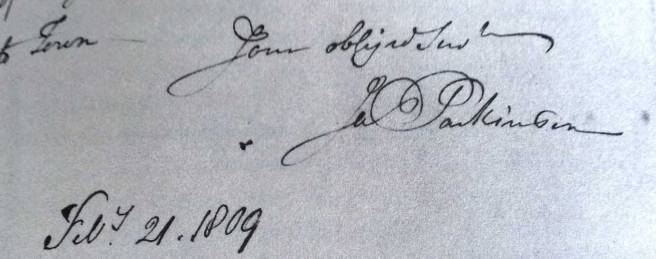 Town — Your obligd Servt
Ja Parkinson
Feby 21. 1809